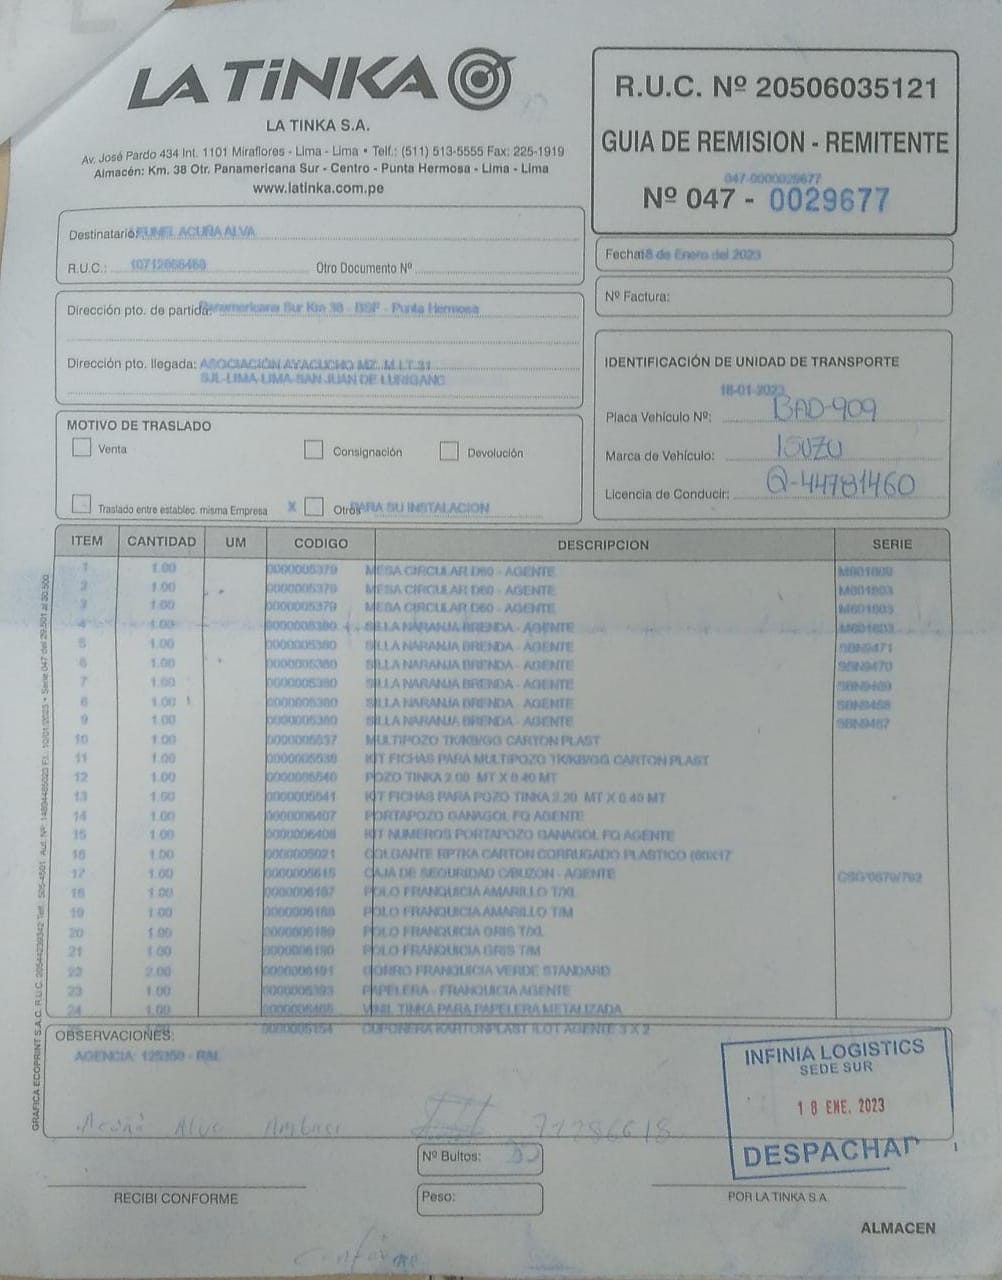 LA TiNKA
LA TINKA S.A.
Av. José Pardo 434 Int. 1101 Miraflores - Lima - Lima • Telf.: (511) 513-5555 Fax: 225-1919
Almacén: Km. 38 Otr. Panamericana Sur - Centro - Punta Hermosa - Lima - Lima
www.latinka.com.pe
R.U.C. Nº 20506035121
GUIA DE REMISION - REMITENTE
047-0000029677
Nº 047 - 0029677
Destinatario: ACUÑA ALVA
R.U.C.:
Otro Documento Nº
Fecha: 18 de Enero del 2023
Nº Factura:
Dirección pto. de partida: Panamericana Sur Km 38 - BSF - Punta Hermosa
Dirección pto. llegada: ASOCIACIÓN AYACUCHO MZ. M LT.31
SJL-LIMA-LIMA-SAN JUAN DE LURIGANC
IDENTIFICACIÓN DE UNIDAD DE TRANSPORTE
18-01-2023
Placa Vehículo Nº: BAD-909
Marca de Vehículo: ISUZU
Licencia de Conducir: Q-44781460
MOTIVO DE TRASLADO
Venta Consignación Devolución
Traslado entre establec. misma Empresa X Otros PARA SU INSTALACION
ITEM CANTIDAD UM CODIGO DESCRIPCION SERIE
1 1.00 0000005379 MESA CIRCULAR D60 - AGENTE
2 1.00 0000005379 MESA CIRCULAR D60 - AGENTE
3 1.00 0000005379 MESA CIRCULAR D60 - AGENTE
4 1.00 0000005380 SILLA NARANJA BRENDA - AGENTE
5 1.00 0000005380 SILLA NARANJA BRENDA - AGENTE SBN9471
6 1.00 0000005380 SILLA NARANJA BRENDA - AGENTE SBN9470
7 1.00 0000005380 SILLA NARANJA BRENDA - AGENTE SBN9469
8 1.00 0000005380 SILLA NARANJA BRENDA - AGENTE SBN9468
9 1.00 0000005380 SILLA NARANJA BRENDA - AGENTE SBN9467
10 1.00 MULTIPOZO TK/KB/GG CARTON PLAST
11 1.00 KIT FICHAS PARA MULTIPOZO TK/KB/GG CARTON PLAST
12 1.00 POZO TINKA 2.00 MT X 0.40 MT
13 1.00 KIT FICHAS PARA POZO TINKA 2.20 MT X 0.40 MT
14 1.00 0000006407 PORTAPOZO GANAGOL FQ AGENTE
15 1.00 0000006408 KIT NUMEROS PORTAPOZO GANAGOL FQ AGENTE
16 1.00 COLGANTE RPTKA CARTON CORRUGADO PLASTICO (60X17
17 1.00 CAJA DE SEGURIDAD C/BUZON - AGENTE
18 1.00 0000006187 POLO FRANQUICIA AMARILLO T/XL
19 1.00 0000006188 POLO FRANQUICIA AMARILLO T/M
20 1.00 0000006189 POLO FRANQUICIA GRIS T/XL
21 1.00 0000006190 POLO FRANQUICIA GRIS T/M
22 2.00 0000006191 GORRO FRANQUICIA VERDE STANDARD
23 1.00 PAPELERA - FRANQUICIA AGENTE
24 1.00 VINIL TINKA PARA PAPELERA METALIZADA
CUPONERA KARTONPLAST ILOT AGENTE 3 X 2
OBSERVACIONES:
AGENCIA:
INFINIA LOGISTICS
SEDE SUR
18 ENE. 2023
DESPACHAD
Acuña Alva 71286618
Nº Bultos:
Peso:
RECIBI CONFORME
POR LA TINKA S.A.
ALMACEN
Conforme